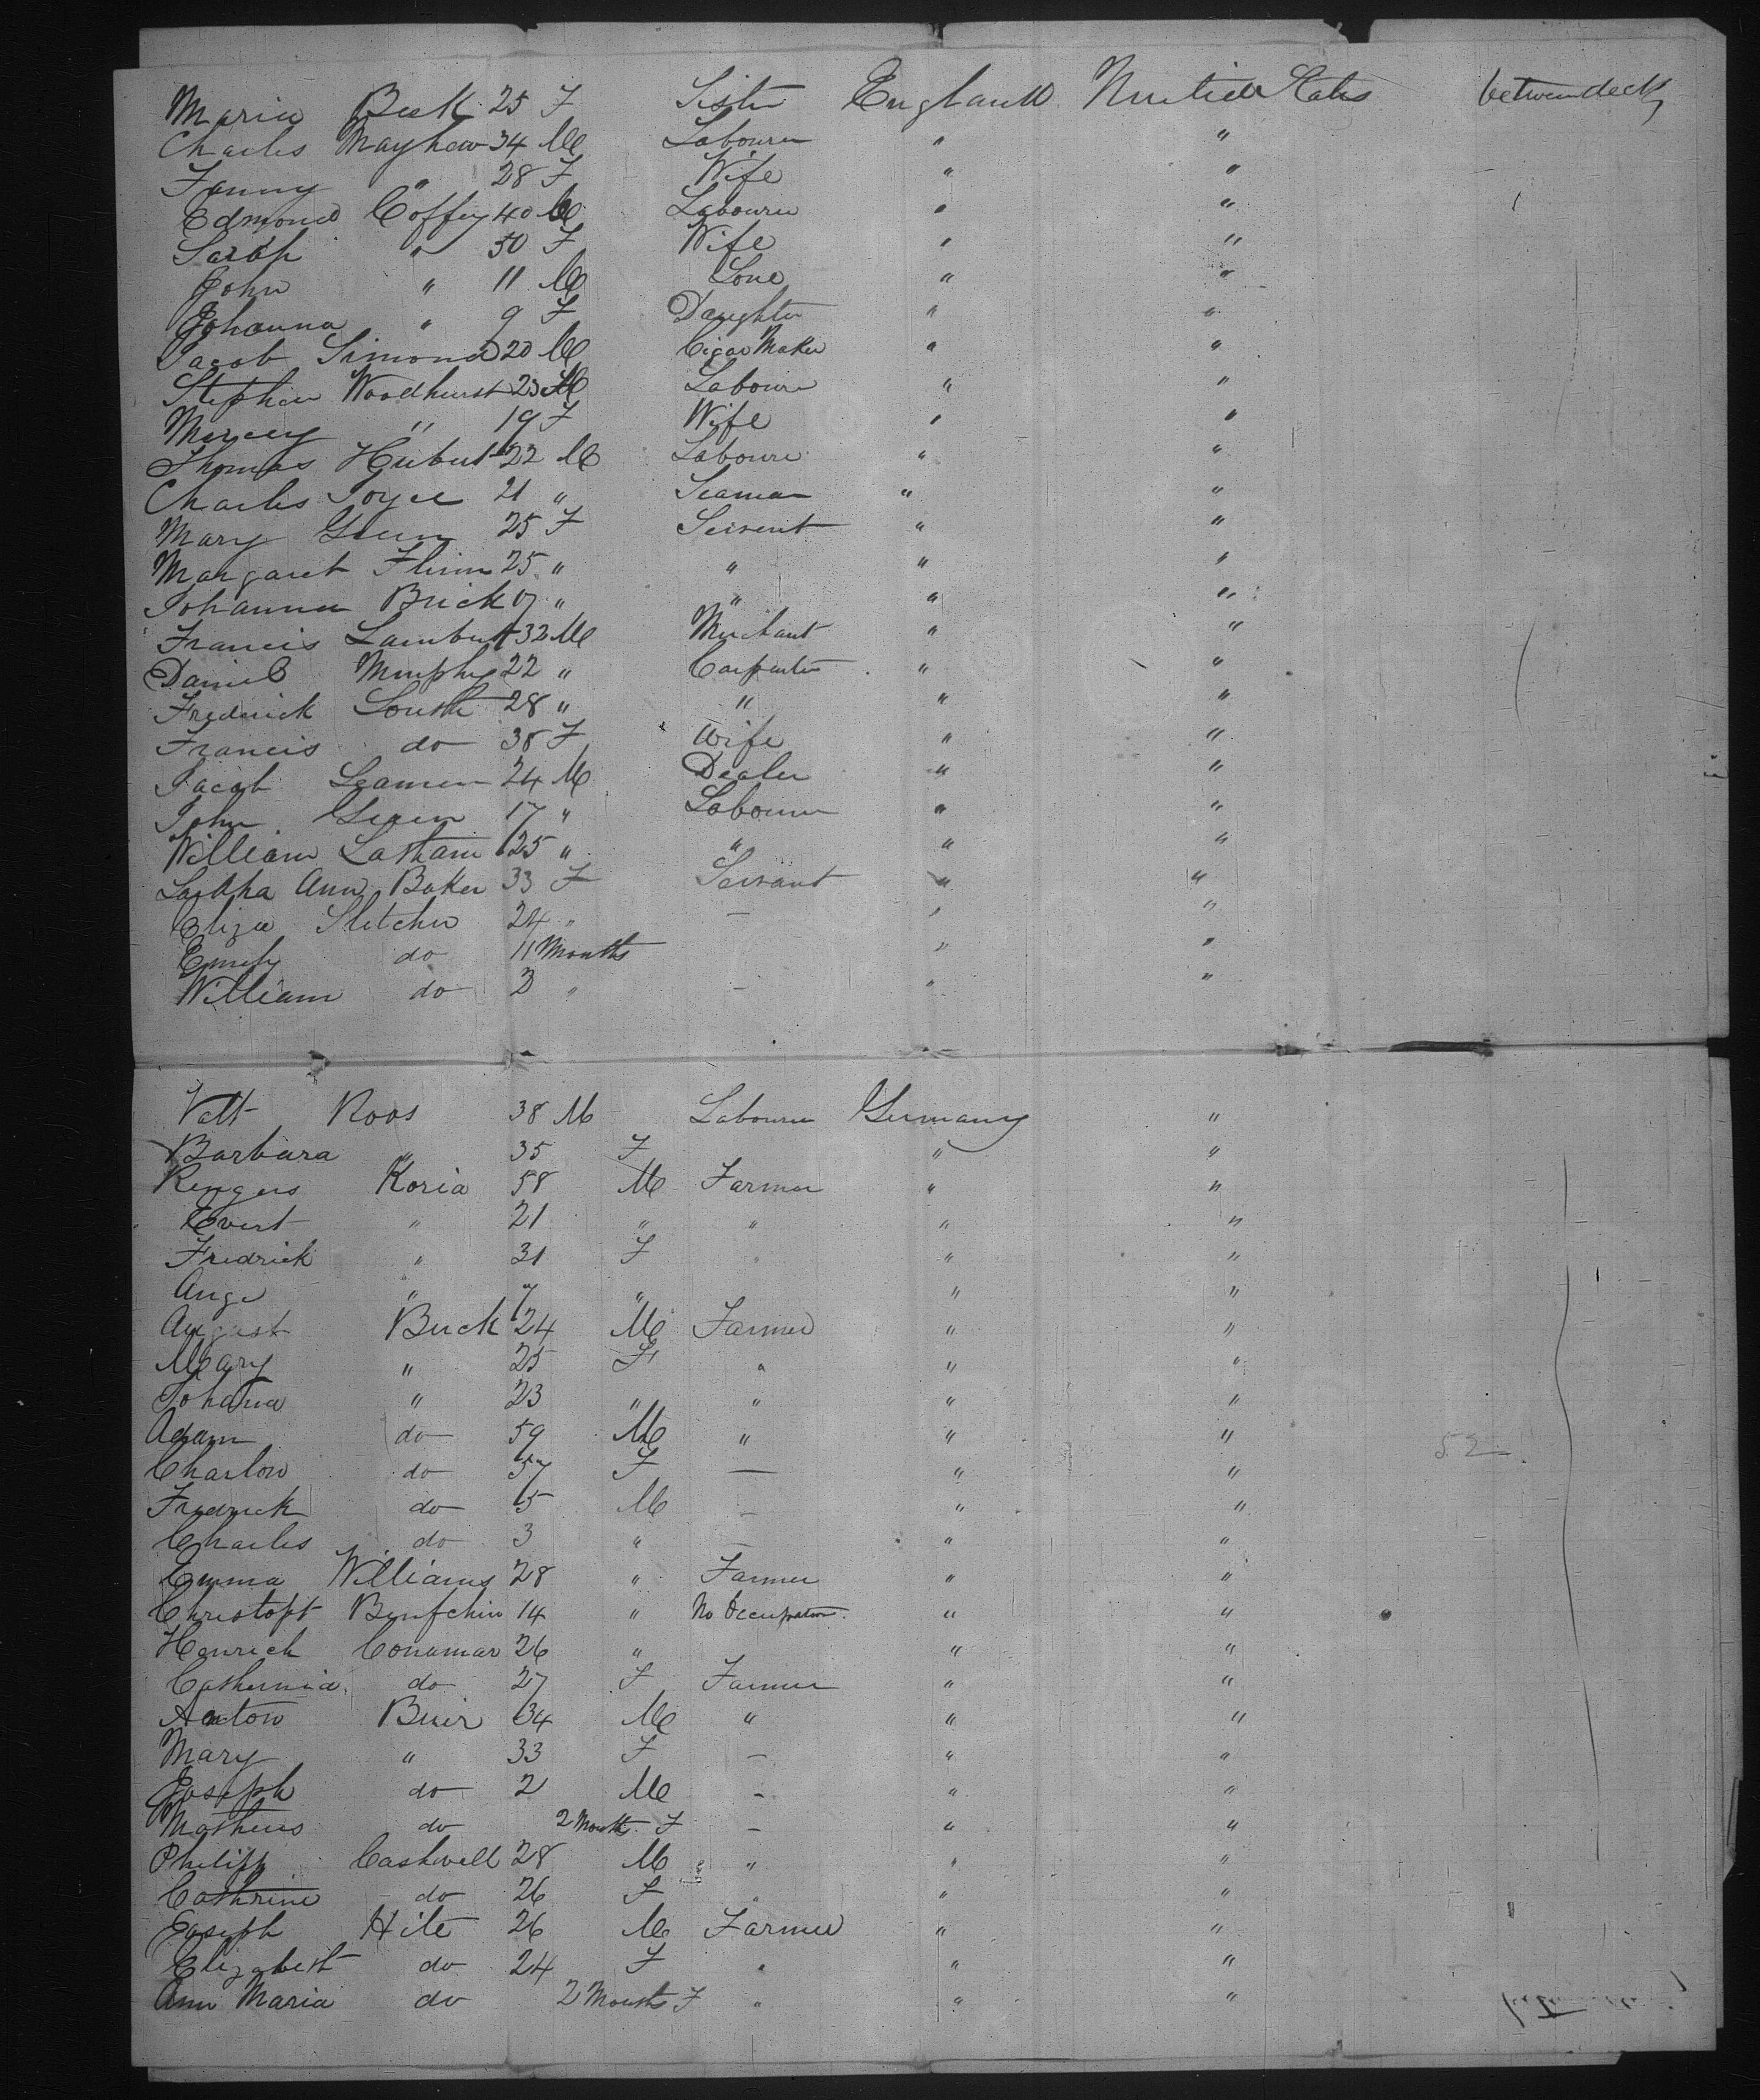 Maria Beck 25 F Sister England United States betweendeck
Charles Mayhew 34 M Labourer " "
Fanny " 28 F Wife " "
Edmond Coffey 40 M Labourer " "
Sarah " 30 F Wife " "
John " 11 M Sone " "
Johanna " 9 F Daughter " "
Jacob Simond 20 M Cigar Maker " "
Stephen Woodhurst 23 M Labourer " "
Mercey " 19 F Wife " "
Thomas Hubert 22 M Labourer " "
Charles Joyce 21 " Seaman " "
Mary Green 25 F Servent " "
Margaret Flinn 25 " " " "
Johanna Brick 17 " " " "
Francis Lambert 32 M Merchant " "
Daniel Murphy 22 " Carpenter " "
Frederick South 28 " " " "
Francis do 38 F Wife " "
Jacob Seamen 24 M Dealer " "
John Green 17 " Labourer " "
William Latham 25 " " " "
Ann Baker 33 F Servant " "
Eliza Sletcher 24 " — " "
Emely do 11 Months " "
William do 3 " — " "
Vatt Roos 38 M Labourer Germany "
Barbara " 35 F " "
Rengers Koria 58 M Farmer " "
Evert " 21 " " " "
Fredrick " 31 F " " "
Ange " 7 " " "
August Buck 24 M Farmer " "
Mary " 25 F " " "
Johana " 23 " " " "
Adam do 59 M " " " 52
Charlow do 57 F — " "
Fredrick do 5 M — " "
Charles do 3 " — " "
Emma Williams 28 " Farmer " "
Christopt 14 " No Occupation " "
Henrich Conamar 26 " " "
Cathernia do 27 F Farmer " "
Anton Buir 34 M " " "
Mary " 33 F — " "
Joseph do 2 M — " "
Matheus do 2 Month F — " "
Philipp Cashwell 28 M " " "
Cathrine do 26 F " " "
Joseph Hite 26 M Farmer " "
Elizabeth do 24 F " " "
Ann Maria do 2 Months F " " "